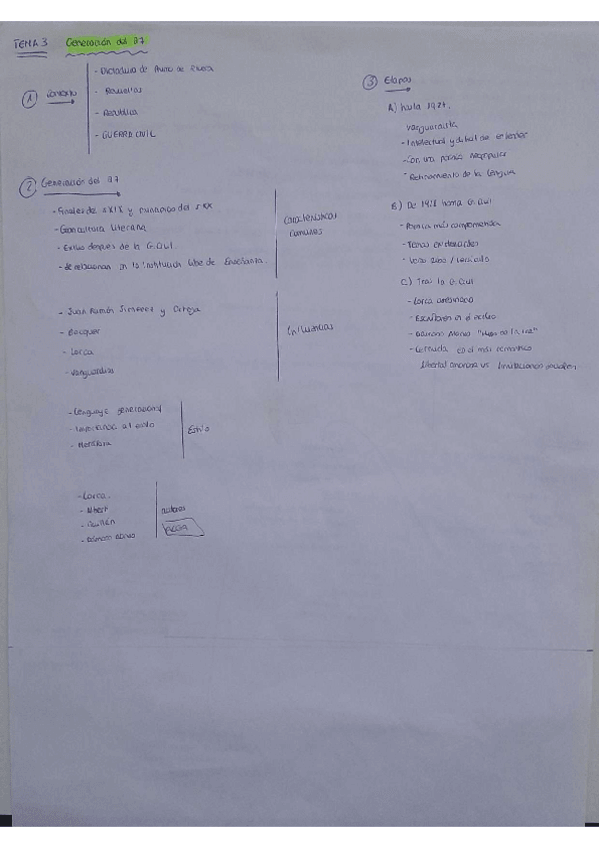 TEMA 3 Generación del 27
① Contexto
- Dictadura de Primo de Rivera
- República
- GUERRA CIVIL
② Generación del 27
- Finales de s XIX y principios del s XX
- Gran cultura literaria
- Exilio despues de la G. Civil
- Se relacionan en la Institución Libre de Enseñanza.
Características comunes
- Juan Ramón Jimenez y Ortega
- Becquer
- Lorca
- Vanguardias
Influencias
- Lenguaje generacional
- al estilo
- Metáfora
Estilo
- Lorca.
- Albert
- Guillén
- Dámaso Alonso
autores
③ Etapas
A) hasta 1927.
vanguardista
- Intelectual y dificil de entender
- Con una poesía
- Refinamiento de la lengua
B) De 1928 hasta G. Civil
- Poesía más comprometida
- Temas
- Verso libre / versículo
C) Tras la G. Civil
- Lorca asesinado
- Escritores en el exilio
- Dámaso Alonso "Hijos de la ira"
- Cernuda es el más romántico
libertad amorosa vs limitaciones sociales